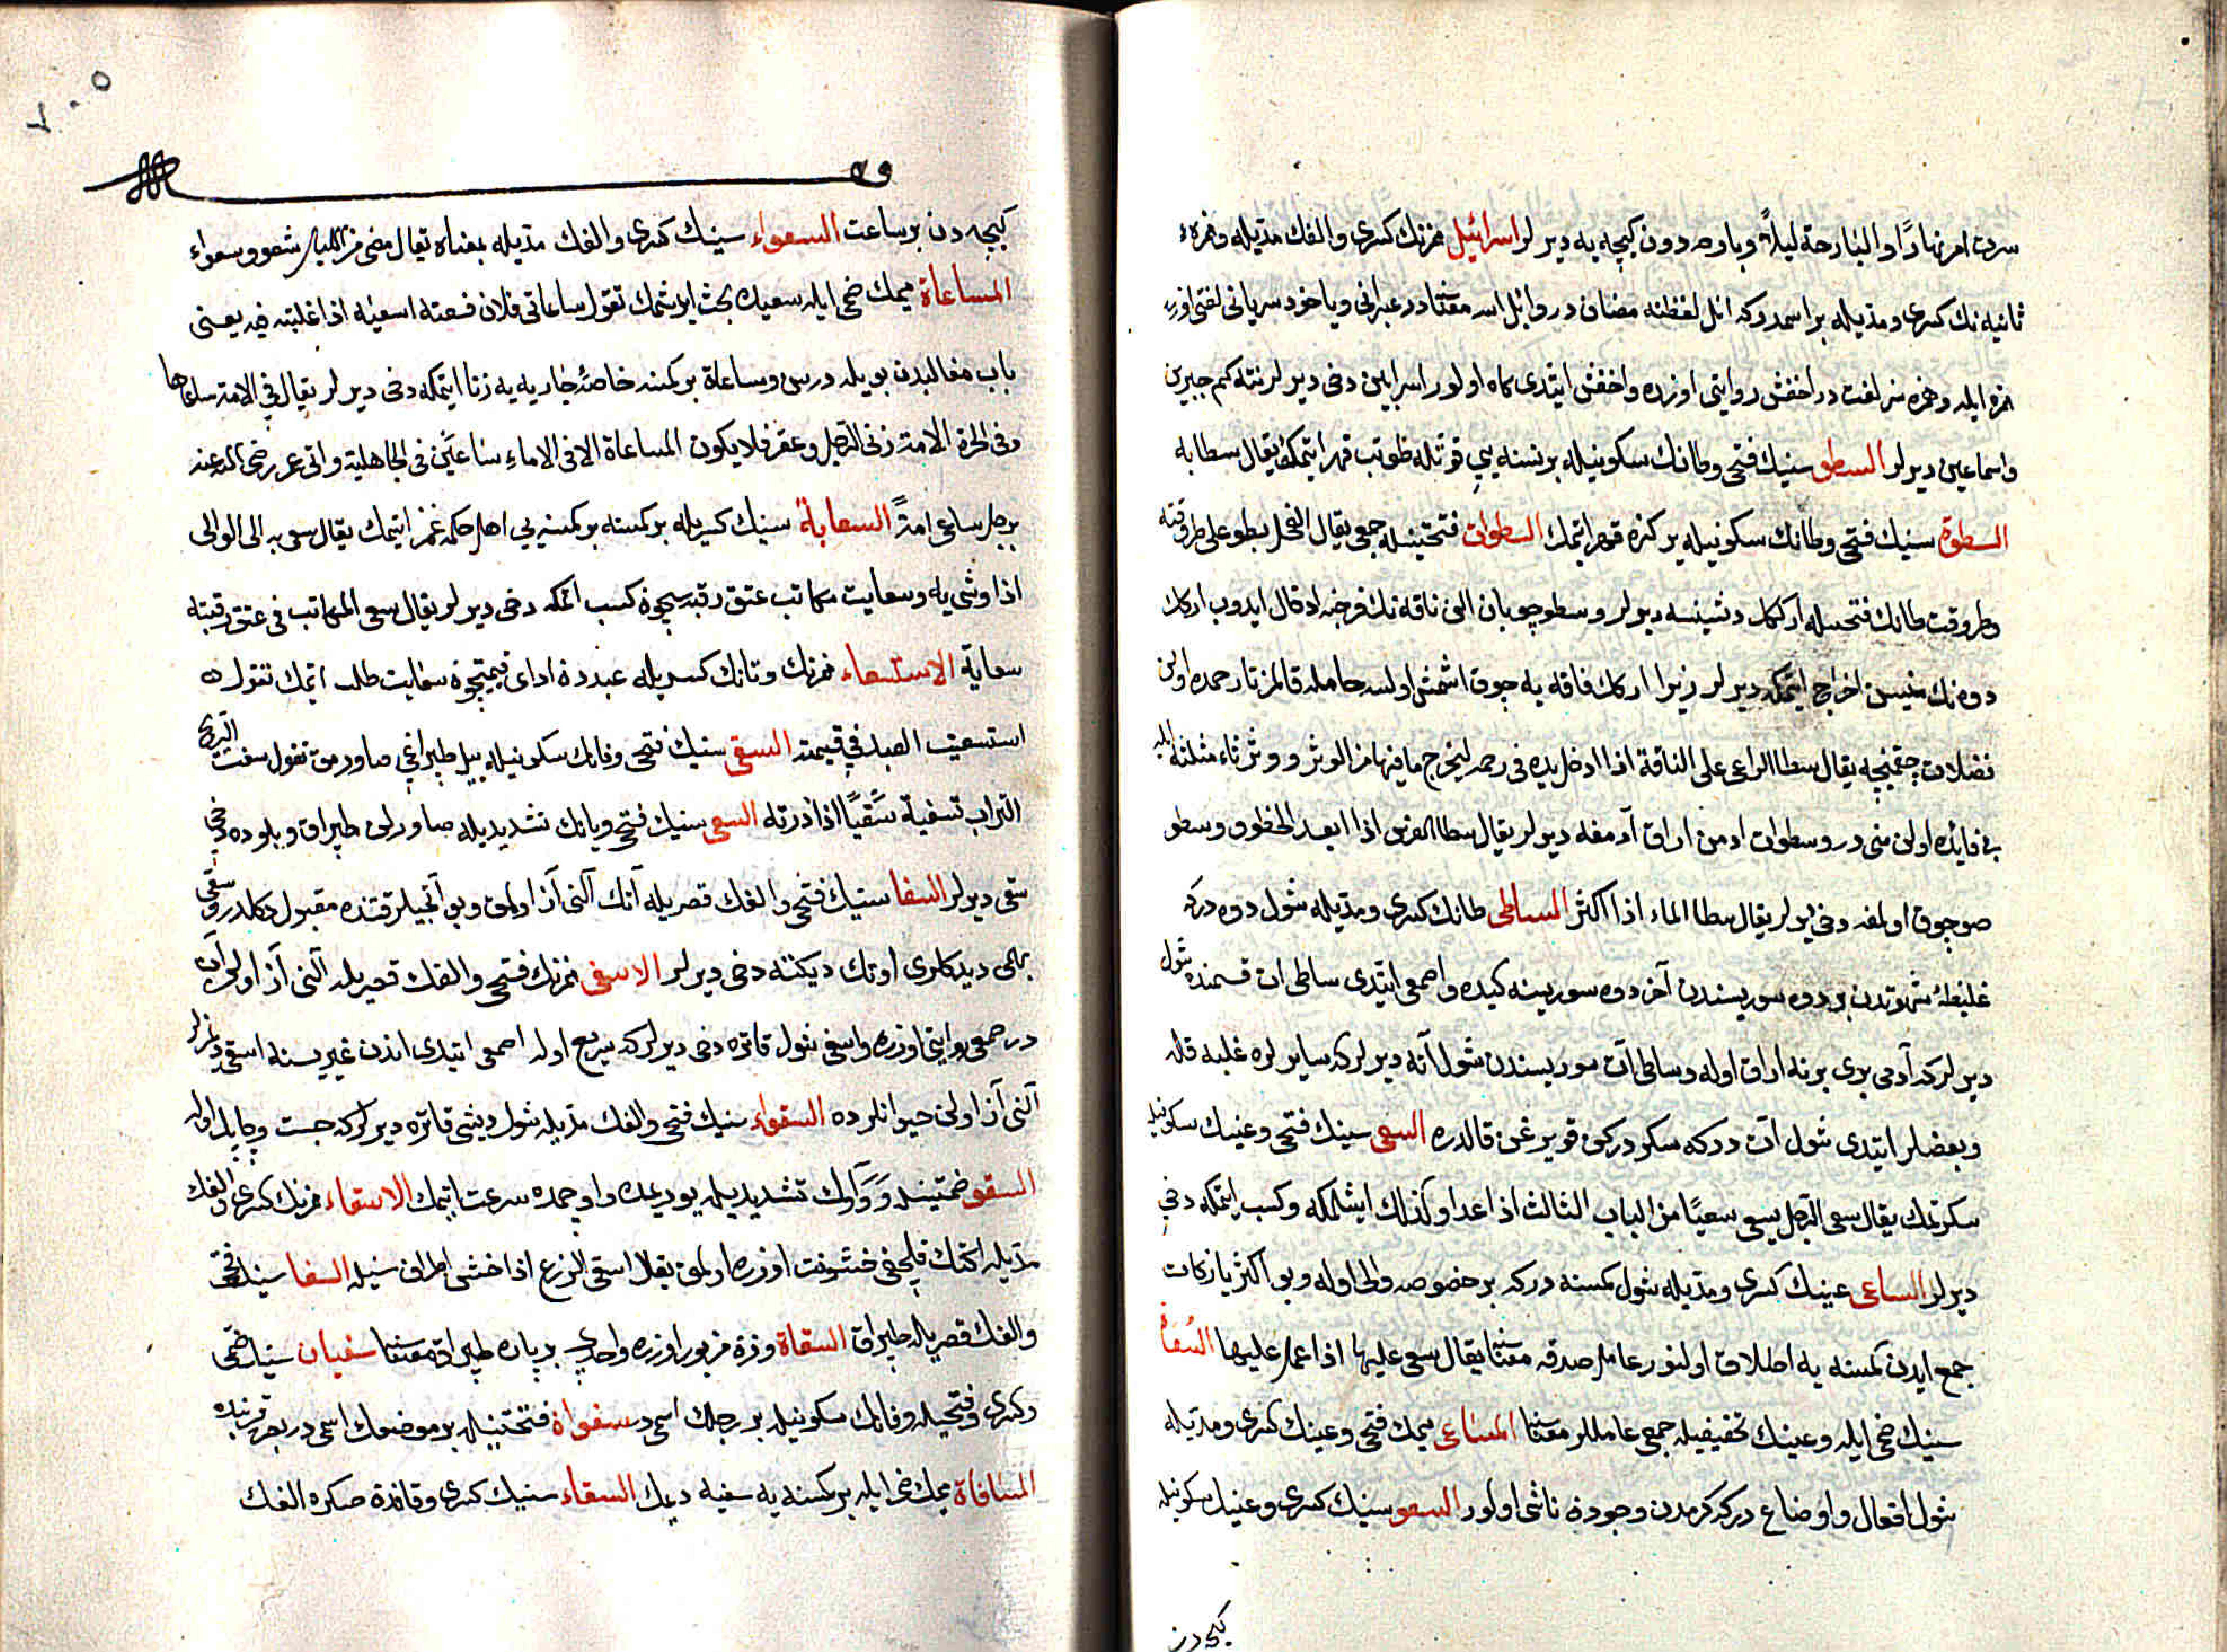 سرت امر نهارًا والبارحة ليلاً وبارحه دون كيجه يه ديرلر اسرائيل همزنك كسرى والفك مديله وهمزهٔ
ثانيه نك كسرى ومديله بر اسمدركه ائل لفظنه مضافدر وائل الله معناسنادر عبرانى وياخود سريانى لغتى اوزره
همزه ايله وهمزه سز لغت در اخفش روايتى اوزره واخفش ايتدى كاه اولور اسرايين دخى ديرلر نته كم جبرين
واسماعين ديرلر السطو سينك فتحى وطانك سكونيله بر نسنه يى قوتله طوتب قهر ايتمك يقال سطا به
السطوة سينك فتحى وطانك سكونيله بر كره قهر ايتمك السطوات فتحتينيله جمعى يقال الفحل يسطو على طروقته
وطروقت طانك فتحسيله اركك دشيسنه ديرلر وسطو چوبان الن ناقه نك فرجنه ادخال ايدوب اركك
دوه نك منيسن اخراج ايتمكه ديرلر زيرا اركك ناقه يه چوق اشمش اولسه حامله قالمز تا رحمده اولن
فضلات چقمينجه يقال سطا الراعى على الناقة اذا ادخل يده فى رحمها ليخرج ما فيها من الوثر ووثر ثاء مثلثه ايله
بى فائده اولن منى در وسطوات ادمن اراق آدمغه ديرلر يقال سطا الفرس اذا ابعد الخطو وسطو
صو چوق اولمغه دخى ديرلر يقال سطا الماء اذا اكثر الساطى طانك كسرى ومديله شول دوه دركه
غليظهٔ شهوتدن بر دوه سوريسندن آخر دوه سوريسنه كيده واصمعى ايتدى ساطى ات قسمنده شول
ديرلر كه آدمى برى برندن اراق اوله وساطى ات سوريسندن شول آته ديرلر كه ساير لره غلبه قله
وبعضلر ايتدى شول ات دركه سكودركن قويرغن قالدره السعى سينك فتحى وعينك سكونيله
سكرتمك يقال سعى الرجل يسعى سعيًا من الباب الثالث اذا عدا وكذلك ايشلمكه وكسب ايتمكه دخى
ديرلر الساعى عينك كسرى ومديله شول كمسنه دركه بر خصوصه والى اوله وبو اكثر يا زكات
جمع ايدن كمسنه يه اطلاق اولنور عامل صدقه معناسنا يقال سعى عليها اذا عمل عليها السعاة
سينك ضمى ايله وعينك تخفيفيله جمعى عامللر معناسنا المساعى ميمك فتحى وعينك كسرى ومديله
شول افعال واوضاع دركه كرمدن وجوده ناشى اولور السعو سينك كسرى وعينك سكونيله
كيجه دن
كيجه دن بر ساعت السعواء سينك كسرى والفك مديله بمعناه يقال مضى من الليل سعو وسعواء
المساعاة ميمك ضمى ايله سعيده بحث ايرشمك تقول ساعانى فلان فسعيته اسعيه اذا غلبته فيه يعنى
باب مغالبدن بويله درس ومساعاة بر كمسنه خاصةً جاريه يه زنا ايتمكه دخى ديرلر يقال فى الامة ساعاها
وفى الحرة الامة زنى الرجل وعهر فلا يكون المساعاة الا فى الاماء ساعين فى الجاهلية واتى عمر رضى الله عنه
برجل ساعى امةً السعاية سينك كسريله بر كمسنه بر كمسنه يى اهل حكمه غمز ايتمك يقال سعى به الى الوالى
اذا وشى به وسعايت مكاتب عتق رقبه سيچون كسب اتمكه دخى ديرلر يقال سعى المكاتب فى عتق رقبته
سعاية الاستسعاء همزنك وتانك كسريله عبددن اداى قيمتيچون سعايت طلب اتمك تقول منه
استسعيت العبد فى قيمته السفى سينك فتحى وفانك سكونيله ييل طپراغى صاورمق تقول سفت الريح
التراب تسفيه سَفْيًا اذا ذرته السفى سينك فتحى ويانك تشديديله صاورلن طپراق وبلوده دخى
سفى ديرلر السفا سينك فتحى والفك قصريله آتك آلنى آز اولمق وبو آتجيلر قتنده مقبول دكلدر وسفى
بهمى ديدكلرى اوتك ديكننه دخى ديرلر الاسفى همزنك فتحى والفك قصريله آلنى آز اولن آت
در اصمعى روايتى اوزره واسفى شول قاتره دخى ديرلر كه سريع اوله اصمعى ايتدى اندن غيريسنه اسفى ديمزلر
آلنى آز اولن حيوانلرده السفواء سينك فتحى والفك مديله شول ديشى قاتره ديرلر كه جست وچابك اوله
السفو ضمتينيله وواوك تشديديله يوريمده واوچمده سرعت ايتمك الاسفاء همزنك كسرى والفك
مديله اكنك قلچغى خشونت اوزره اولمق يقال اسفى الزرع اذا خشن اطراف سنبله السفا سينك فتحى
والفك قصريله طپراق السفاة وزن مزبور اوزره واحدى بر پاره طپراق معناسنا سفيان سينك ضمى
وكسرى وفتحيله وفانك سكونيله بر رجلك اسمى در سفوان فتحتينيله بر موضعك اسمى در بصره قربنده
المسافاة ميمك ضمى ايله بر كمسنه يه سفيه ديمك السقاء سينك كسرى وقافدن صكره الفك